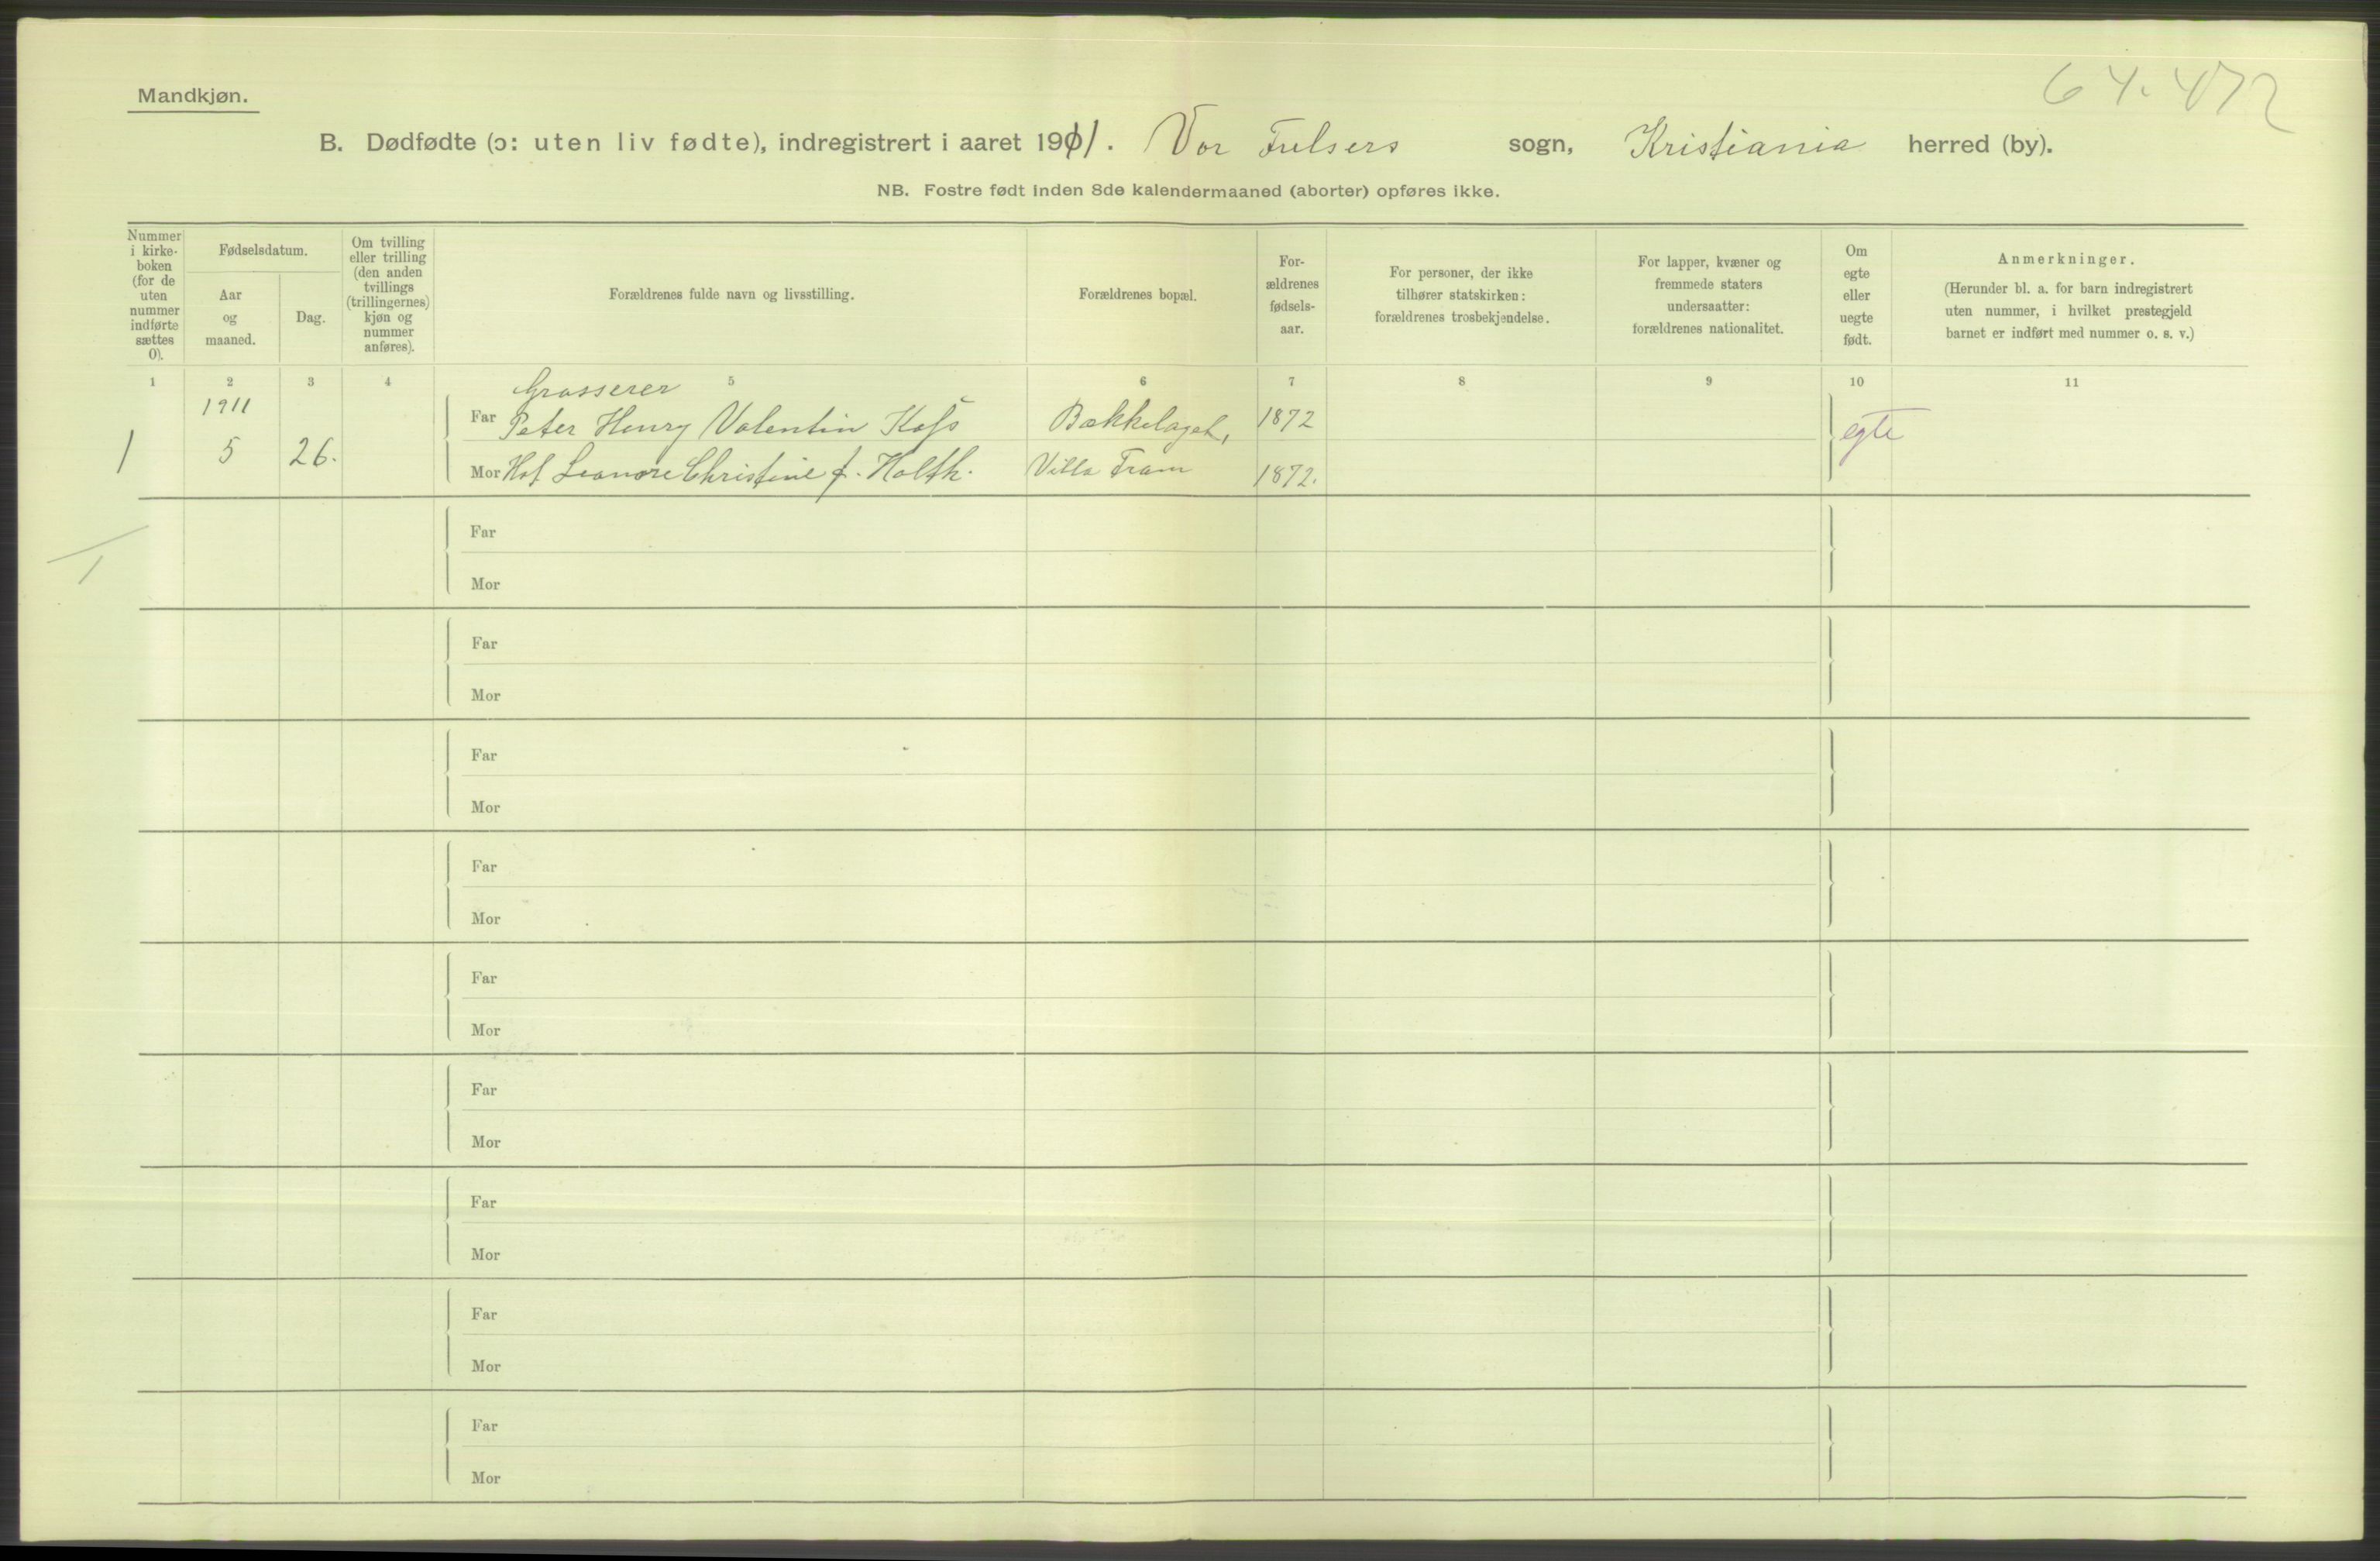 64.472
Mandkjøn.
B. Dødfødte (ɔ: uten liv fødte), indregistrert i aaret 1911. Vor Frelsers sogn, Kristiania herred (by).
NB. Fostre født inden 8de kalendermaaned (aborter) opføres ikke.
Nummer i kirke-boken (for de uten nummer indførte sættes 0).
Fødselsdatum.
Aar og maaned.
Dag.
Om tvilling eller trilling (den anden tvillings (trillingernes) kjøn og nummer anføres).
Forældrenes fulde navn og livsstilling.
Forældrenes bopæl.
For-ældrenes fødsels-aar.
For personer, der ikke tilhører statskirken: forældrenes trosbekjendelse.
For lapper, kvæner og fremmede staters undersaatter: forældrenes nationalitet.
Om egte eller uegte født.
Anmerkninger.
(Herunder bl. a. for barn indregistrert uten nummer, i hvilket prestegjeld barnet er indført med nummer o. s. v.)
1 2 3 4 5 6 7 8 9 10 11
1911 Grosserer
Far Peter Henry Valentin Bækkelaget, 1872
1 5 26. egte
Mor Leonore Christine f. Holth. Villa Fram 1872.
Far
Mor
Far
Mor
Far
Mor
Far
Mor
Far
Mor
Far
Mor
Far
Mor
Far
Mor
Far
Mor